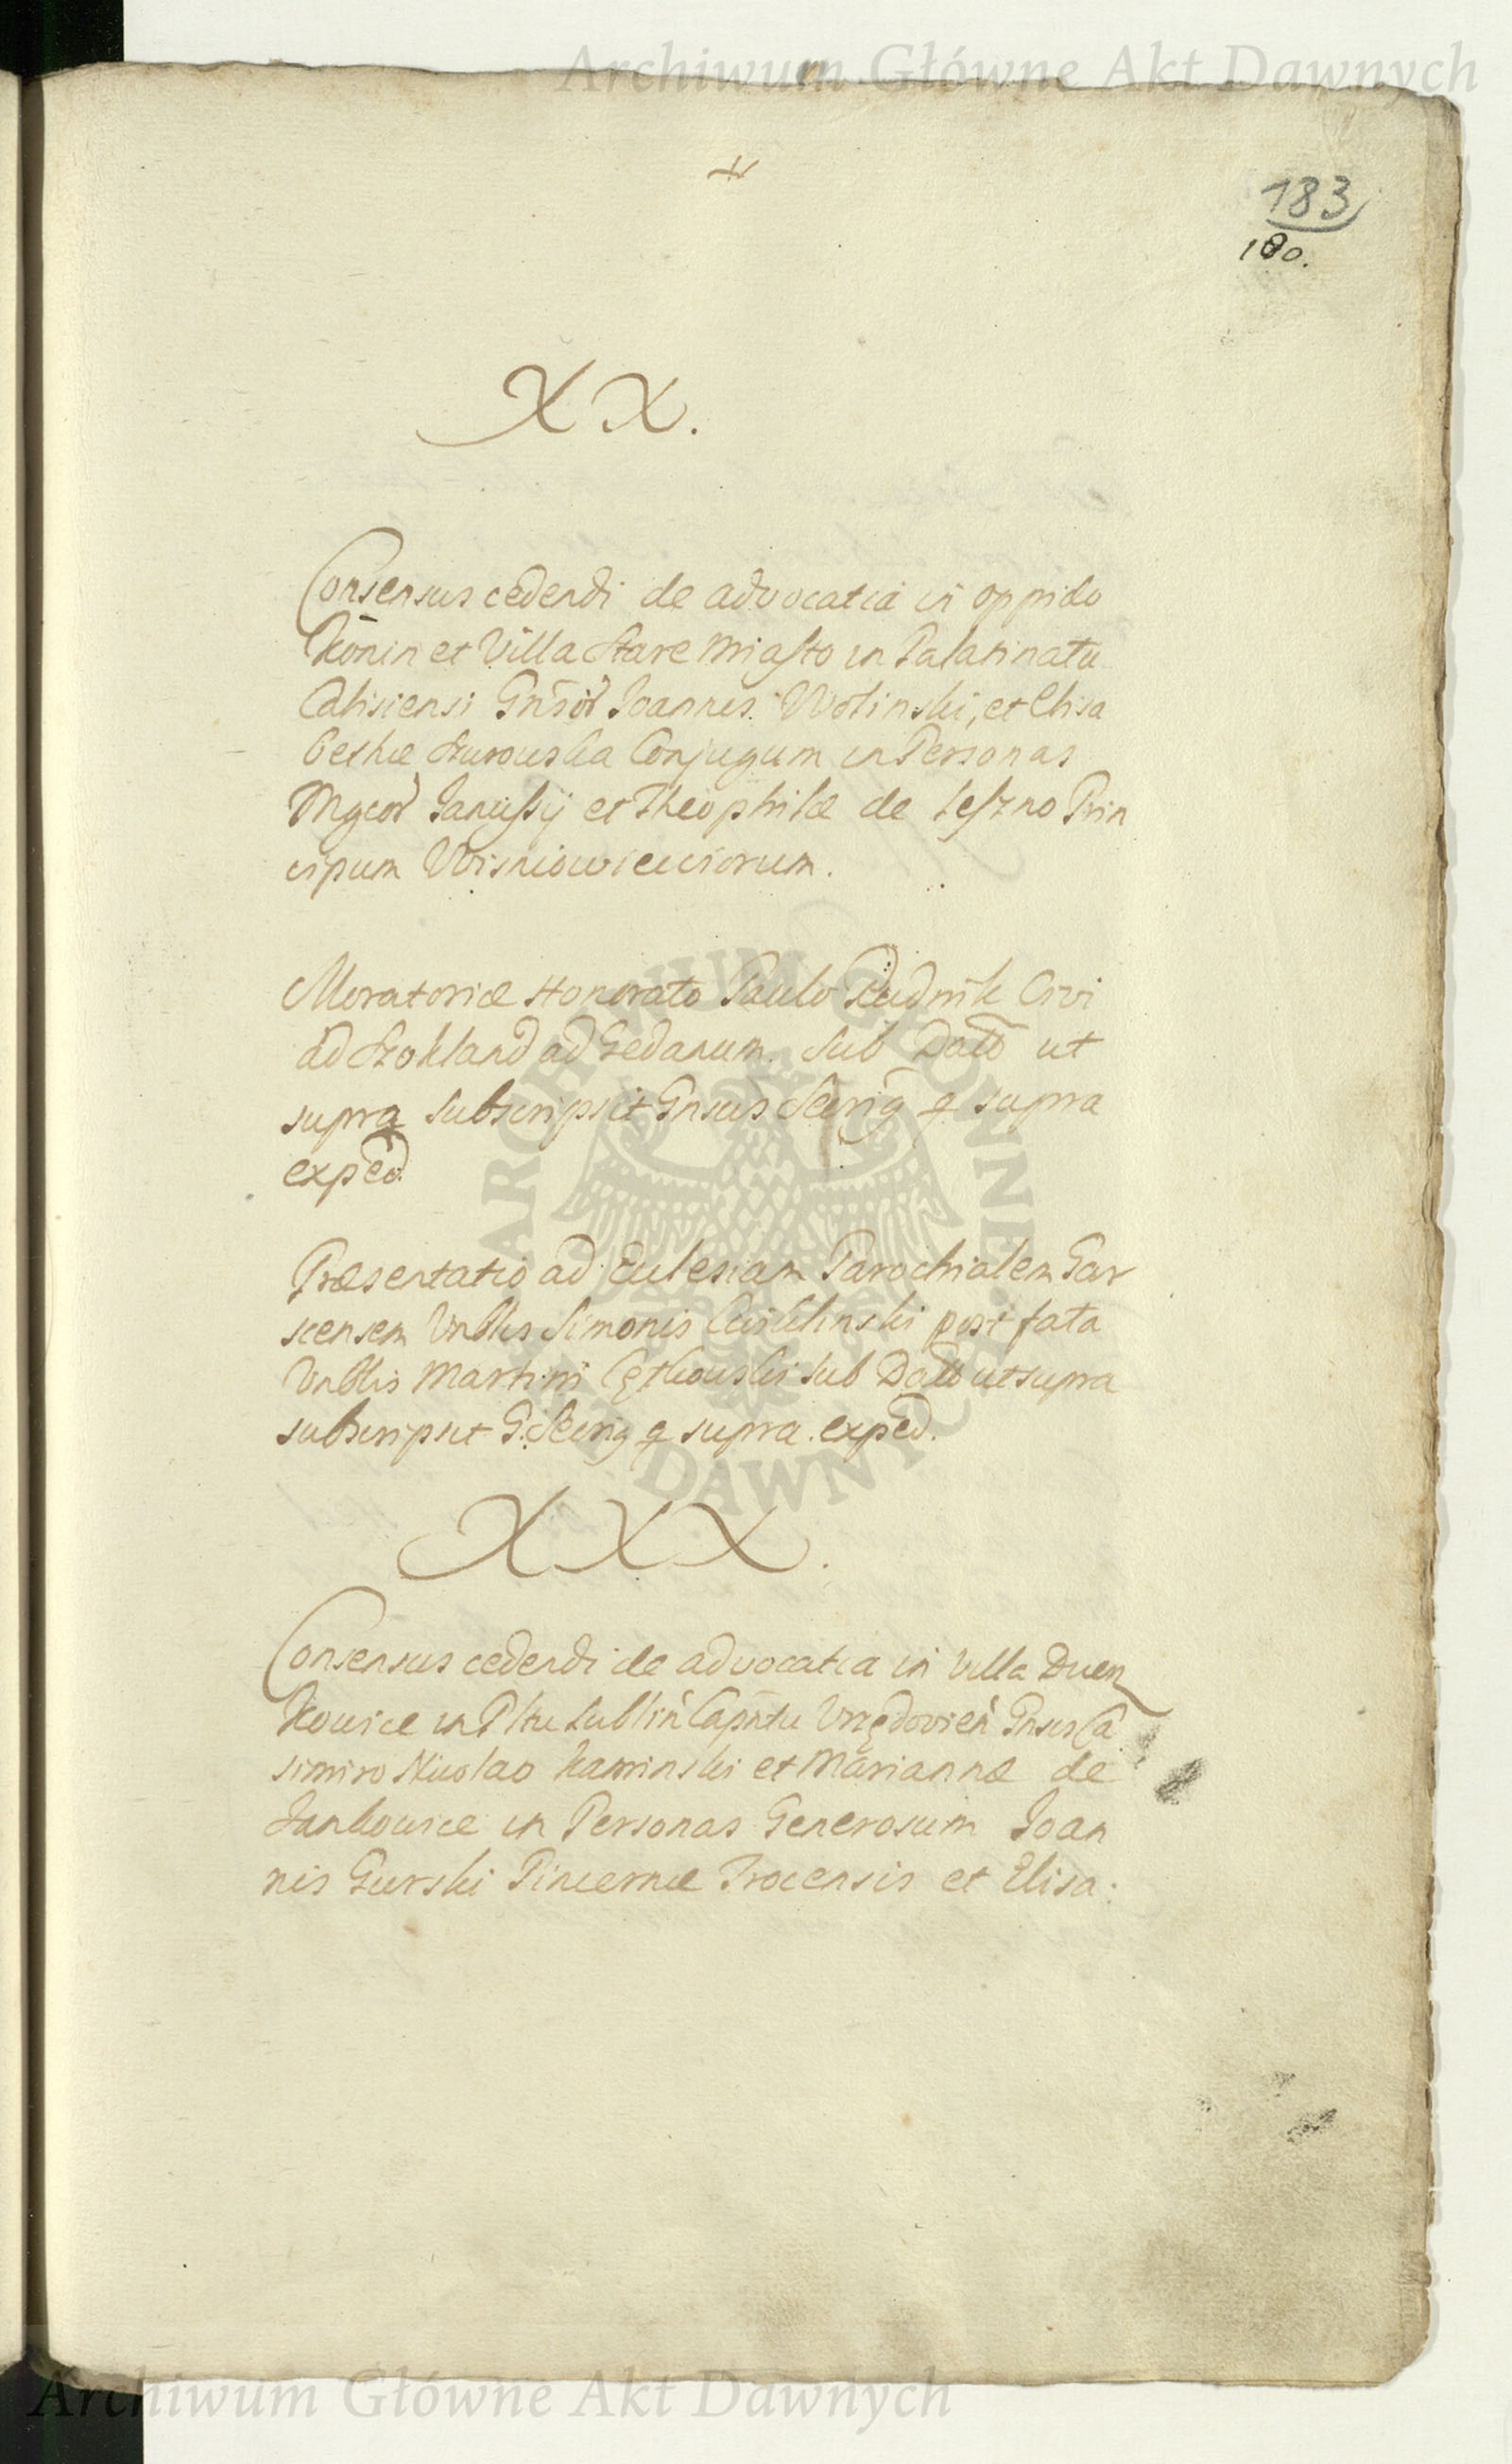 Archiwum Główne Akt Dawnych
183
180.
XX.
Consensus cedendi de advocatia in oppido
Konin et Villa Stare Miasto in Palatinatu
Calisiensi Gnsor Joannis Wolinski, et Elisa
bethæ Conjugum in Personas
Mgcor Janussij et Theophilæ de Leszno Prin
cipum Wisniowiecciorum.
Moratoriæ Honorato Paulo Rudnik Civi
ad Szokland ad Gedanum. Sub Datto ut
supra subscripsit Gnsus Secrirg q supra
exped.
Præsentatio ad Ecclesiam Parochialem Gar
scensem Vnblis Simonis post fata
Vnblis Martini sub Datto ut supra
subscripsit G. Secrirg q supra exped.
XXX.
Consensus cedendi de advocatia in villa Duen
kowice in Pltu Lublin Capntu Vrzędovien Gnsis Ca
simiro Nicolao Kaminski et Mariannæ de
Jankowice in Personas Generosum Joan
nis Gurski Pincernæ Trocensis et Elisa.
ARCHIWUM GŁÓWNE
AKT DAWNYCH
Archiwum Główne Akt Dawnych